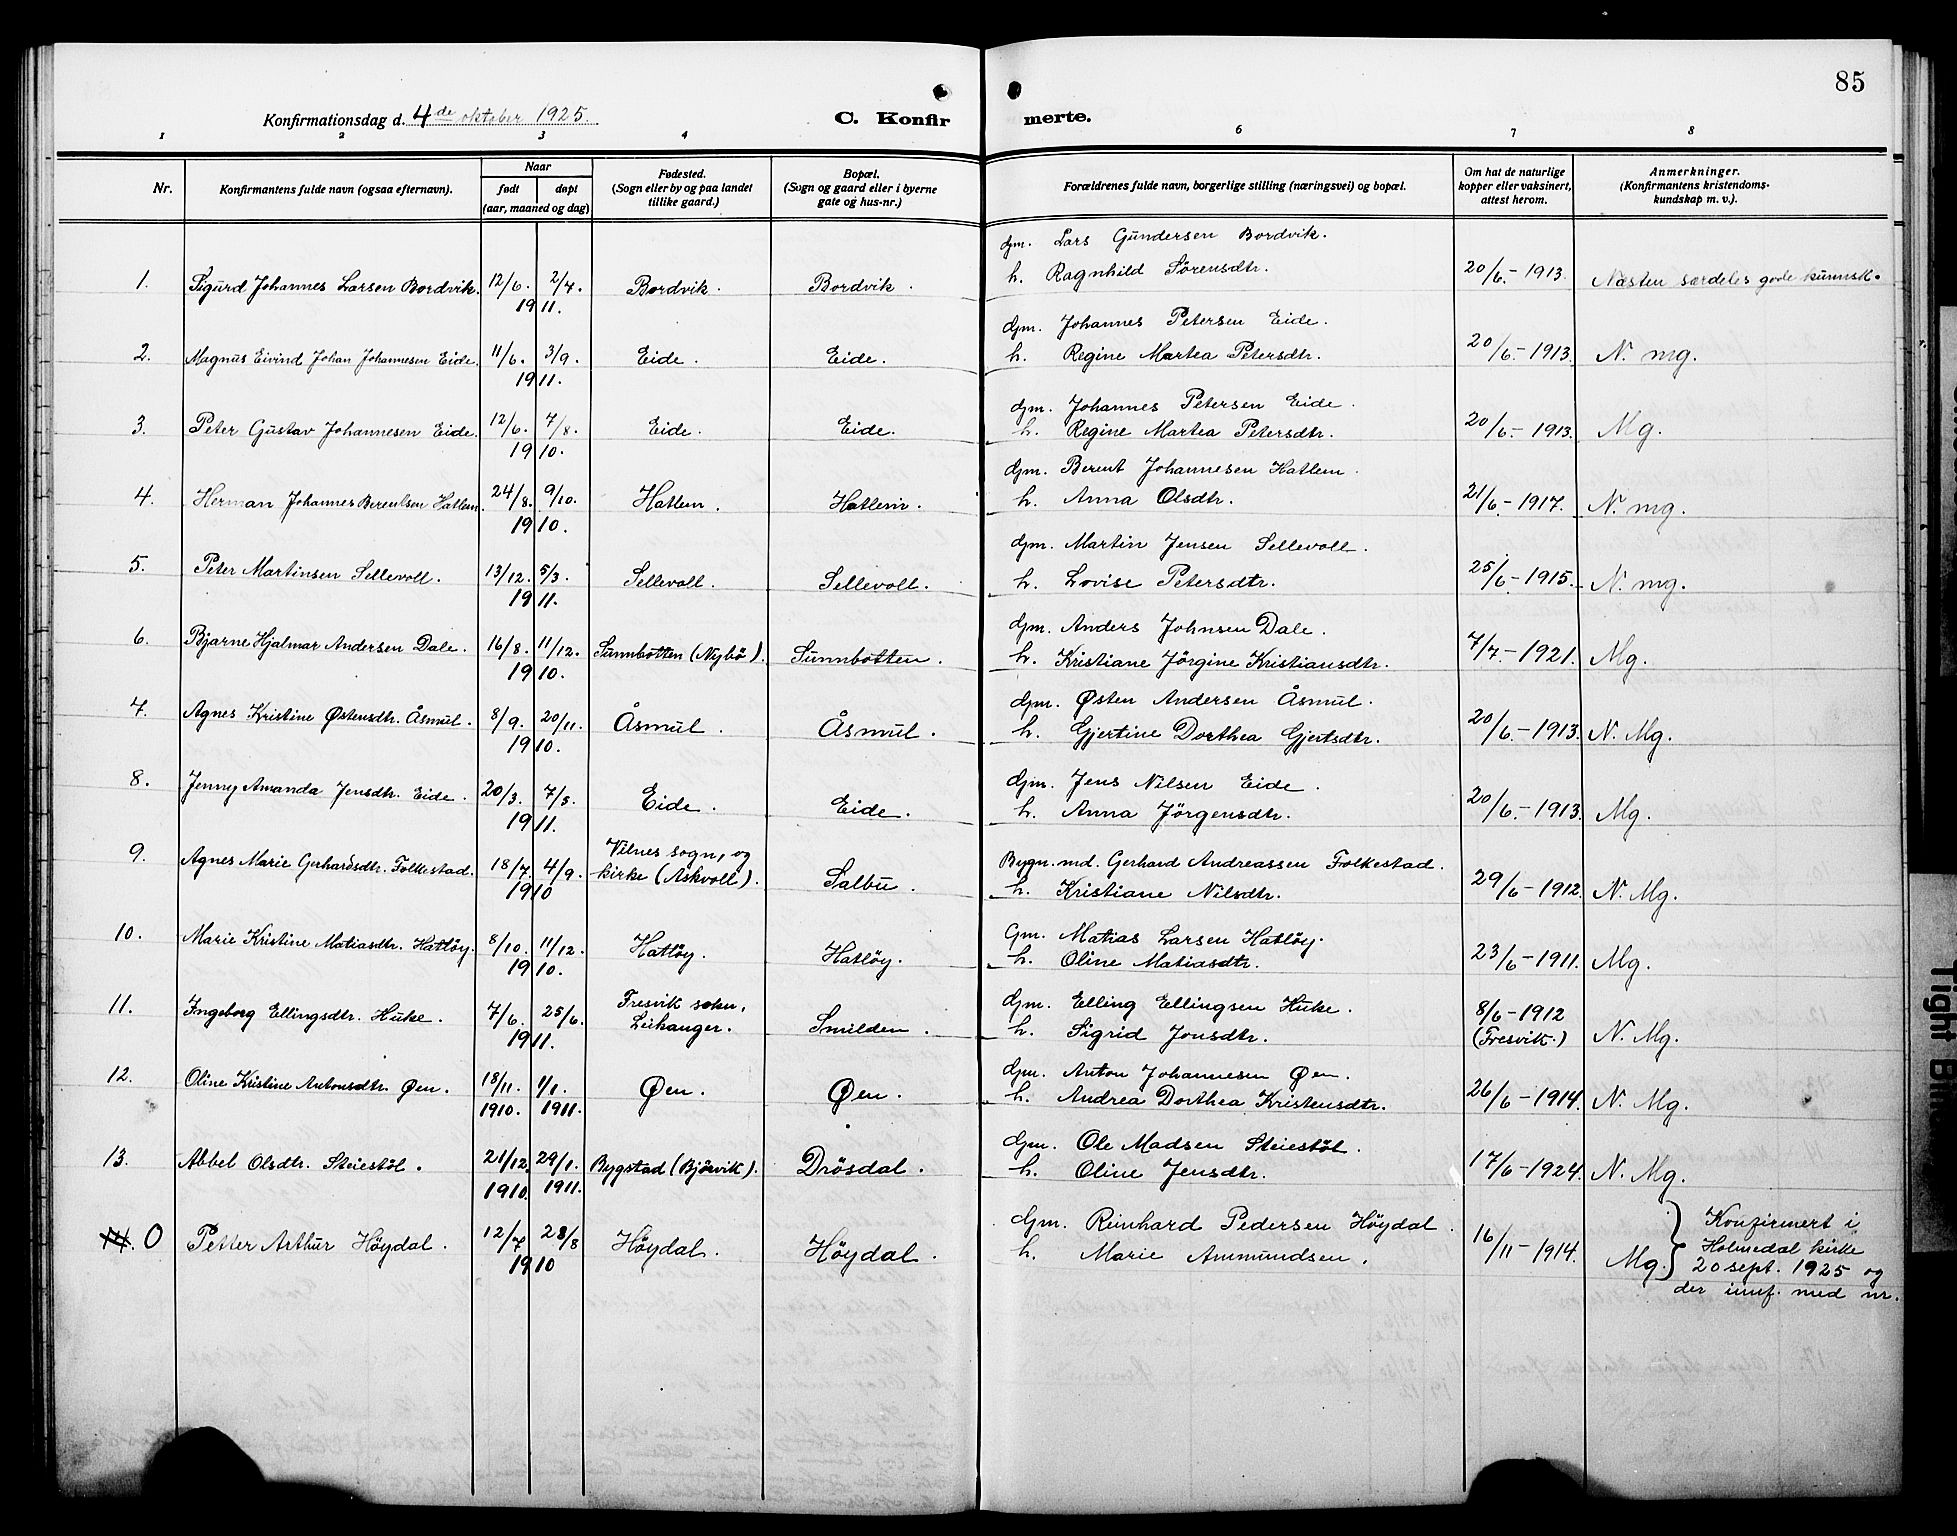 85
Konfirmationsdag d. 4de oktober 1925. C. Konfirmerte.
1 2 3 4 6 7 8
Nr. Konfirmantens fulde navn (ogsaa efternavn). Naar født døpt (aar, maaned og dag) Fødested. (Sogn eller by og paa landet tillike gaard.) Bopæl. (Sogn og gaard eller i byerne gate og hus-nr.) Forældrenes fulde navn, borgerlige stilling (næringsvei) og bopæl. Om hat de naturlige kopper eller vaksinert, attest herom. Anmerkninger. (Konfirmantens kristendoms-kundskap m. v.).
gm. Lars Gundersen Bordvik.
1. Sigurd Johannes Larsen Bordvik. 12/6. 2/7. 1911. Bordvik. Bordvik. h. Ragnhild Sørensdtr. 20/6.-1913. Næsten særdeles gode kunnsk.
gm. Johannes Petersen Eide.
2. Magnus Eivind Johan Johannesen Eide. 11/6. 3/9. 1911. Eide. Eide. h. Regine Martea Petersdtr. 20/6.-1913. N. mg.
gm. Johannes Petersen Eide.
3. Peter Gustav Johannesen Eide. 12/6. 7/8. 1910. Eide. Eide. h. Regine Martea Petersdtr. 20/6.-1913. Mg.
gm. Berent Johannesen Hatlem.
4. Herman Johannes Berentsen Hatlem. 24/8. 9/10. 1910. Hatlem. Hatlem. h. Anna Olsdtr. 21/6.-1917. N. mg.
gm. Martin Jensen Sellevoll.
5. Peter Martinsen Sellevoll. 13/12. 5/3. 1911. Sellevoll. Sellevoll. h. Lovise Petersdtr. 25/6.-1915. N. mg.
gm. Anders Johnsen Dale.
6. Bjarne Hjalmar Andersen Dale. 16/8. 11/12. 1910. Sunnbotten (Nybö). Sunnbotten. h. Kristiane Jörgine Kristiansdtr. 7/7.-1921. Mg.
gm. Østen Andersen Åsmul.
7. Agnes Kristine Østensdtr. Åsmul. 8/9. 20/11. 1910. Åsmul. Åsmul. h. Gjertine Dorthea Gjertsdtr. 20/6.-1913. N. Mg.
gm. Jens Nilsen Eide.
8. Jenny Amanda Jensdtr. Eide. 20/3. 7/5. 1911. Eide. Eide. h. Anna Jörgensdtr. 20/6-1913. Mg.
Bygn.md. Gerhard Andreassen Folkestad.
9. Agnes Marie Gerhardsdtr. Folkestad. 18/7. 4/9. 1910 Vilnes sogn, og kirke (Askvoll). Salbu. h. Kristiane Nilsdtr. 29/6-1912. N. Mg.
Gm. Matias Larsen Hatlöy.
10. Marie Kristine Matiasdtr. Hatlöy. 8/10. 11/12. 1910. Hatlöy. Hatlöy. h. Oline Matiasdtr. 23/6-1911. Mg.
gm. Elling Ellingsen Huke.
11. Ingeborg Ellingsdtr. Huke. 7/6. 25/6. 1911. Fresvik sokn, Leikanger. Smilden. h. Sigrid Jonsdtr. 8/6-1912 (Fresvik.) N. Mg.
gm. Anton Johannesen Øen.
12. Oline Kristine Antonsdtr. Øen. 18/11. 1910. 1/1. 1911. Øen. Øen. h. Andrea Dorthea Kristensdtr. 26/6-1914. N. Mg.
gm. Ole Madsen Steiestöl.
13. Abbel Olsdtr. Steiestöl. 21/12. 1910. 29/1. 1911. Bygstad (Bjørvik). Drösdal. h. Oline Jensdtr. 17/6-1924. N. Mg.
gm. Reinhard Pedersen Höydal.
0 Petter Arthur Höydal. 12/7 28/8 1910 Höydal. Höydal. h. Marie Ammundsen. 16/11-1914. Mg. Konfirmert i
Holmedal kirke
20 sept. 1925 og
der innf. med nr.
Tight